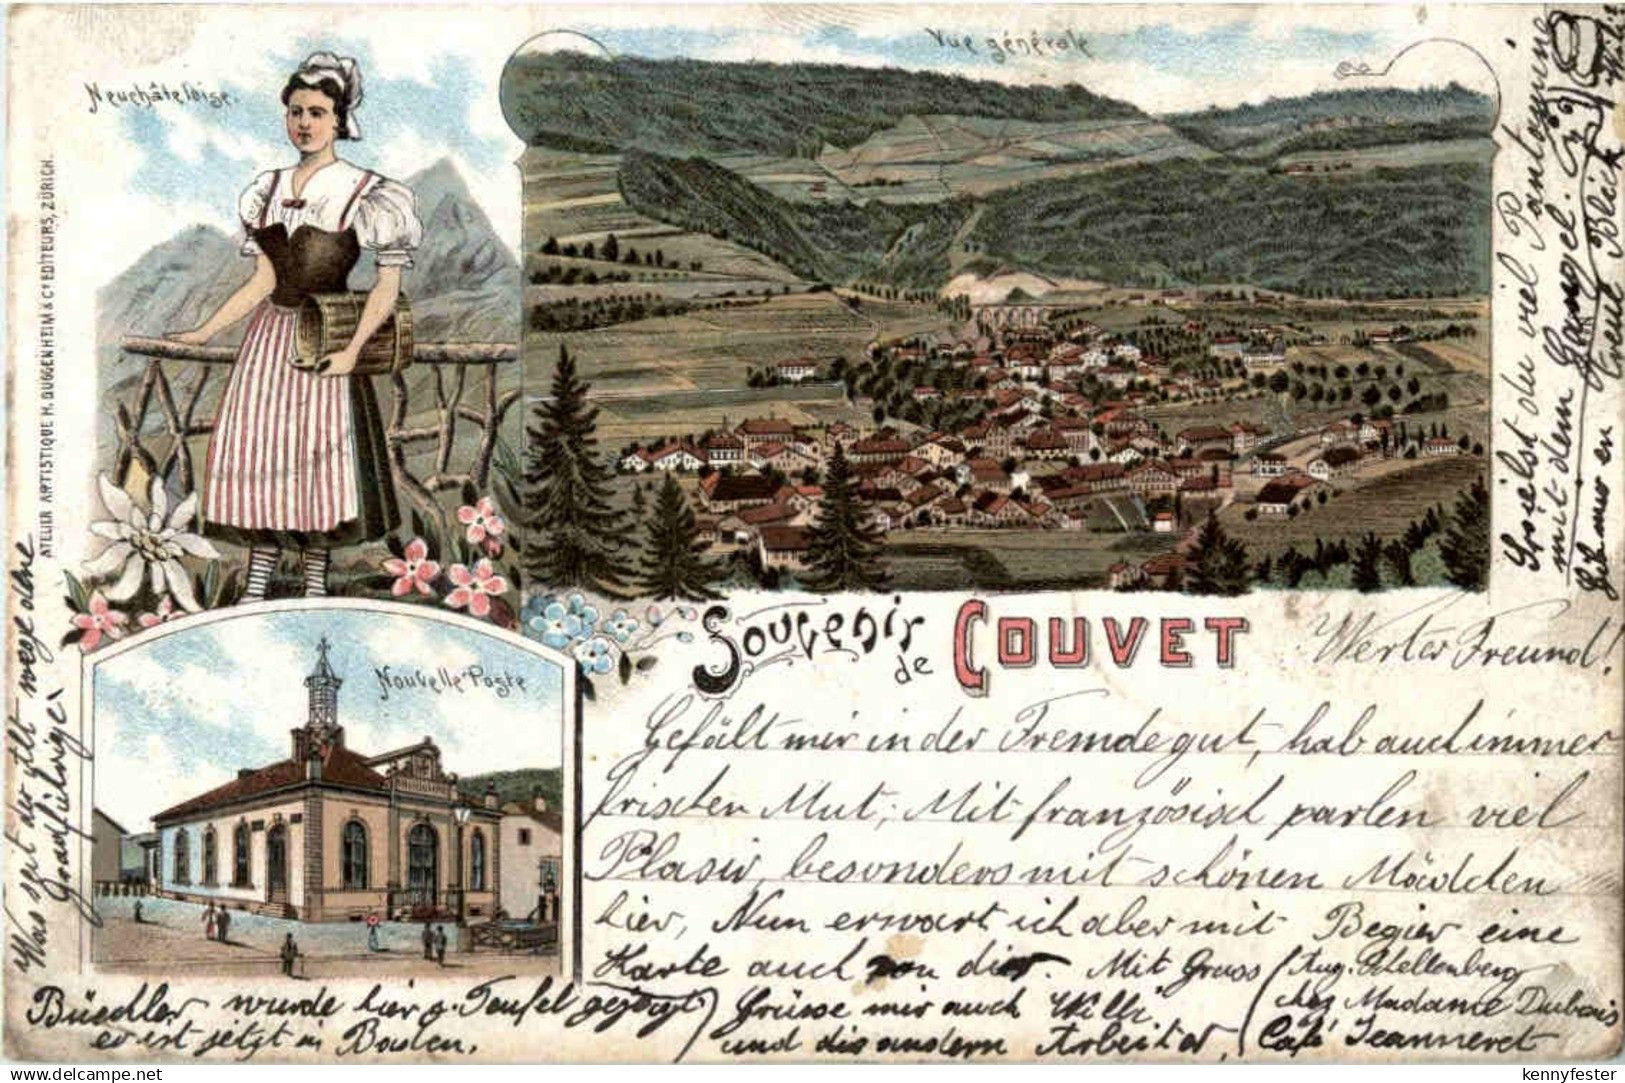 Neuchâteloise.
Vue générale
ATELIER ARTISTIQUE H. GUGGENHEIM & Cº EDITEURS, ZÜRICH.
Nouvelle Poste
Souvenir
de COUVET
Werter Freund!
Gefält mir in der Fremde gut, hab auch immer
frischen Mut, Mit französisch parlen viel
Plasir, besonders mit schönen Mädchen
hier, Nun erwart ich aber mit Begier eine
Karte auch von dir. Mit Gruss
Aug. Schellenberg
chez Madame Dubois
Café Jeanneret
Grüsse mir auch Willi
und die andern Arbeiter,
Büechler wurde hier z. Teufel gejagt
er ist jetzt in Baden.
Was seit der alt wege dene
Spielst du viel Pantomine
mit dem
Gib mir en treue Blick
delcampe.net
kennyfester